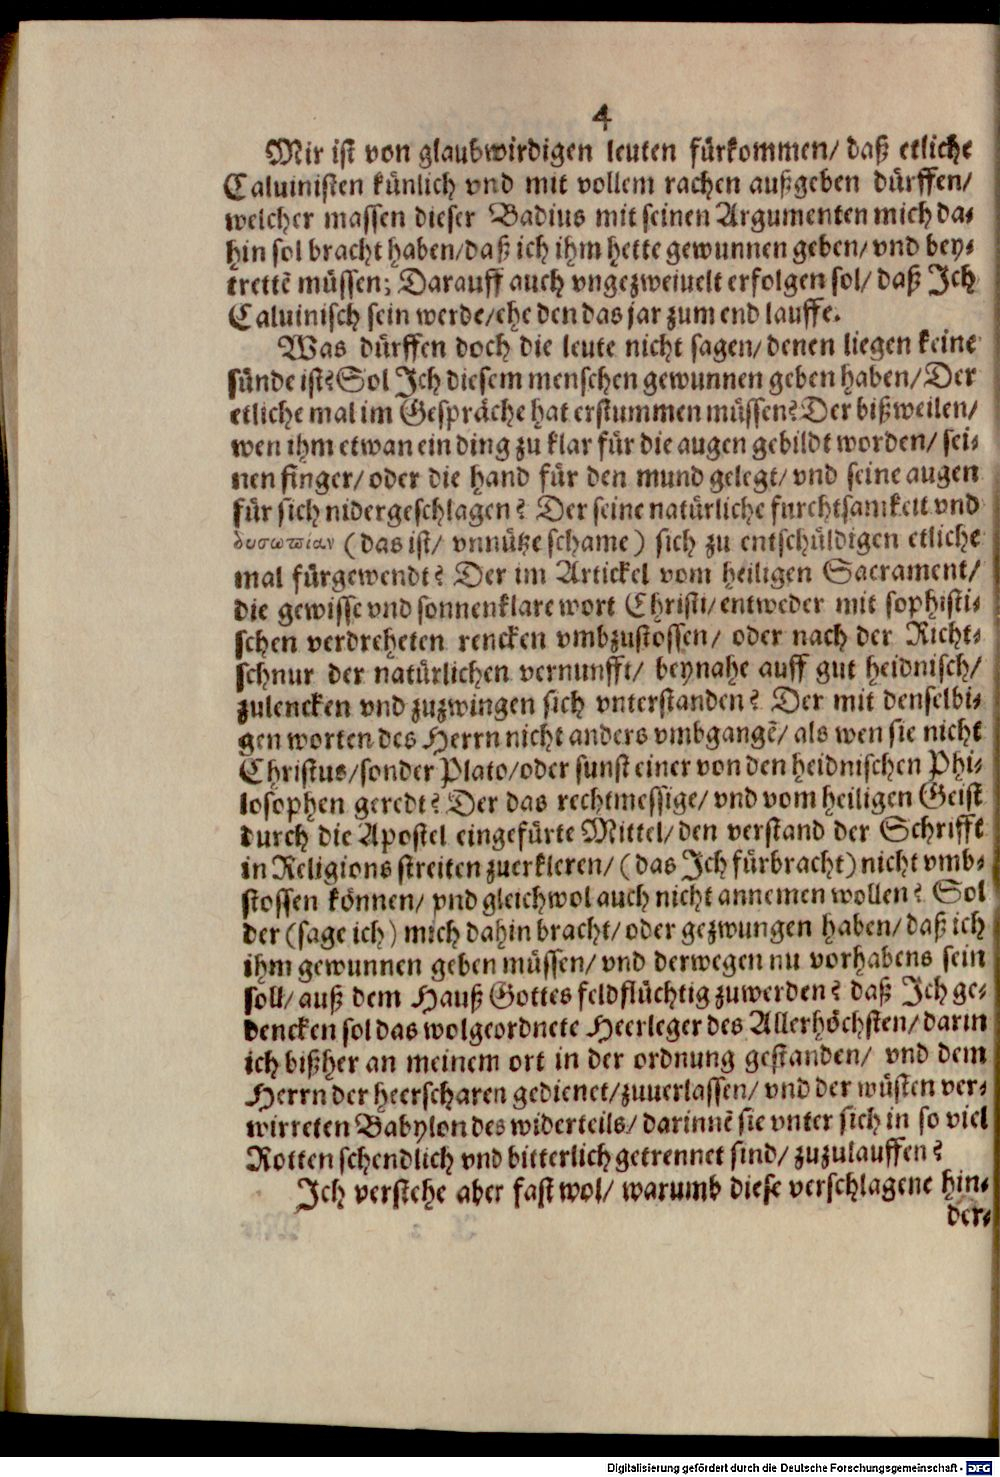 4
Mir ist von glaubwirdigen leuten fürkommen/ daß etliche
Caluinisten künlich vnd mit vollem rachen außgeben dürffen/
welcher massen dieser Badius mit seinen Argumenten mich da-
hin sol bracht haben/daß ich ihm hette gewunnen geben/ vnd bey-
trettē müssen; Darauff auch vngezweiuelt erfolgen sol/ daß Ich
Caluinisch sein werde/ehe den das jar zum end lauffe.
Was dürffen doch die leute nicht sagen/denen liegen keine
sünde ist? Sol Ich diesem menschen gewunnen geben haben/ Der
etliche mal im Gespräche hat erstummen müssen? Der bißweilen/
wen ihm etwan ein ding zu klar für die augen gebildt worden/ sei-
nen finger/ oder die hand für den mund gelegt/ vnd seine augen
für sich nidergeschlagen? Der seine natürliche furchtsamkeit vnd
δυσωπίαν (das ist/ vnnütze schame) sich zu entschüldigen etliche
mal fürgewendt? Der im Artickel vom heiligen Sacrament/
die gewisse vnd sonnenklare wort Christi/ entweder mit sophisti-
schen verdreheten rencken vmbzustossen/ oder nach der Richt-
schnur der natürlichen vernunfft/ beynahe auff gut heidnisch/
zulencken vnd zuzwingen sich vnterstanden? Der mit denselbi-
gen worten des Herrn nicht anders vmbgangē/ als wen sie nicht
Christus/sonder Plato/oder sunst einer von den heidnischen Phi-
losophen geredt? Der das rechtmessige/ vnd vom heiligen Geist
durch die Apostel eingefürte Mittel/ den verstand der Schrifft
in Religions streiten zuerkleren/ (das Ich fürbracht) nicht vmb-
stossen können/ vnd gleichwol auch nicht annemen wollen? Sol
der (sage ich) mich dahin bracht/ oder gezwungen haben/ daß ich
ihm gewunnen geben müssen/ vnd derwegen nu vorhabens sein
soll/ auß dem Hauß Gottes feldflüchtig zuwerden? daß Ich ge-
dencken sol das wolgeordnete Heerleger des Allerhöchsten/ darin
ich bißher an meinem ort in der ordnung gestanden/ vnd dem
Herrn der heerscharen gedienet/zuuerlassen/ vnd der wüsten ver-
wirreten Babylon des widerteils/ darinnē sie vnter sich in so viel
Rotten schendlich vnd bitterlich getrennet sind/ zuzulauffen?
Ich verstehe aber fast wol/ warumb diese verschlagene hin-
der-
Digitalisierung gefördert durch die Deutsche Forschungsgemeinschaft - DFG